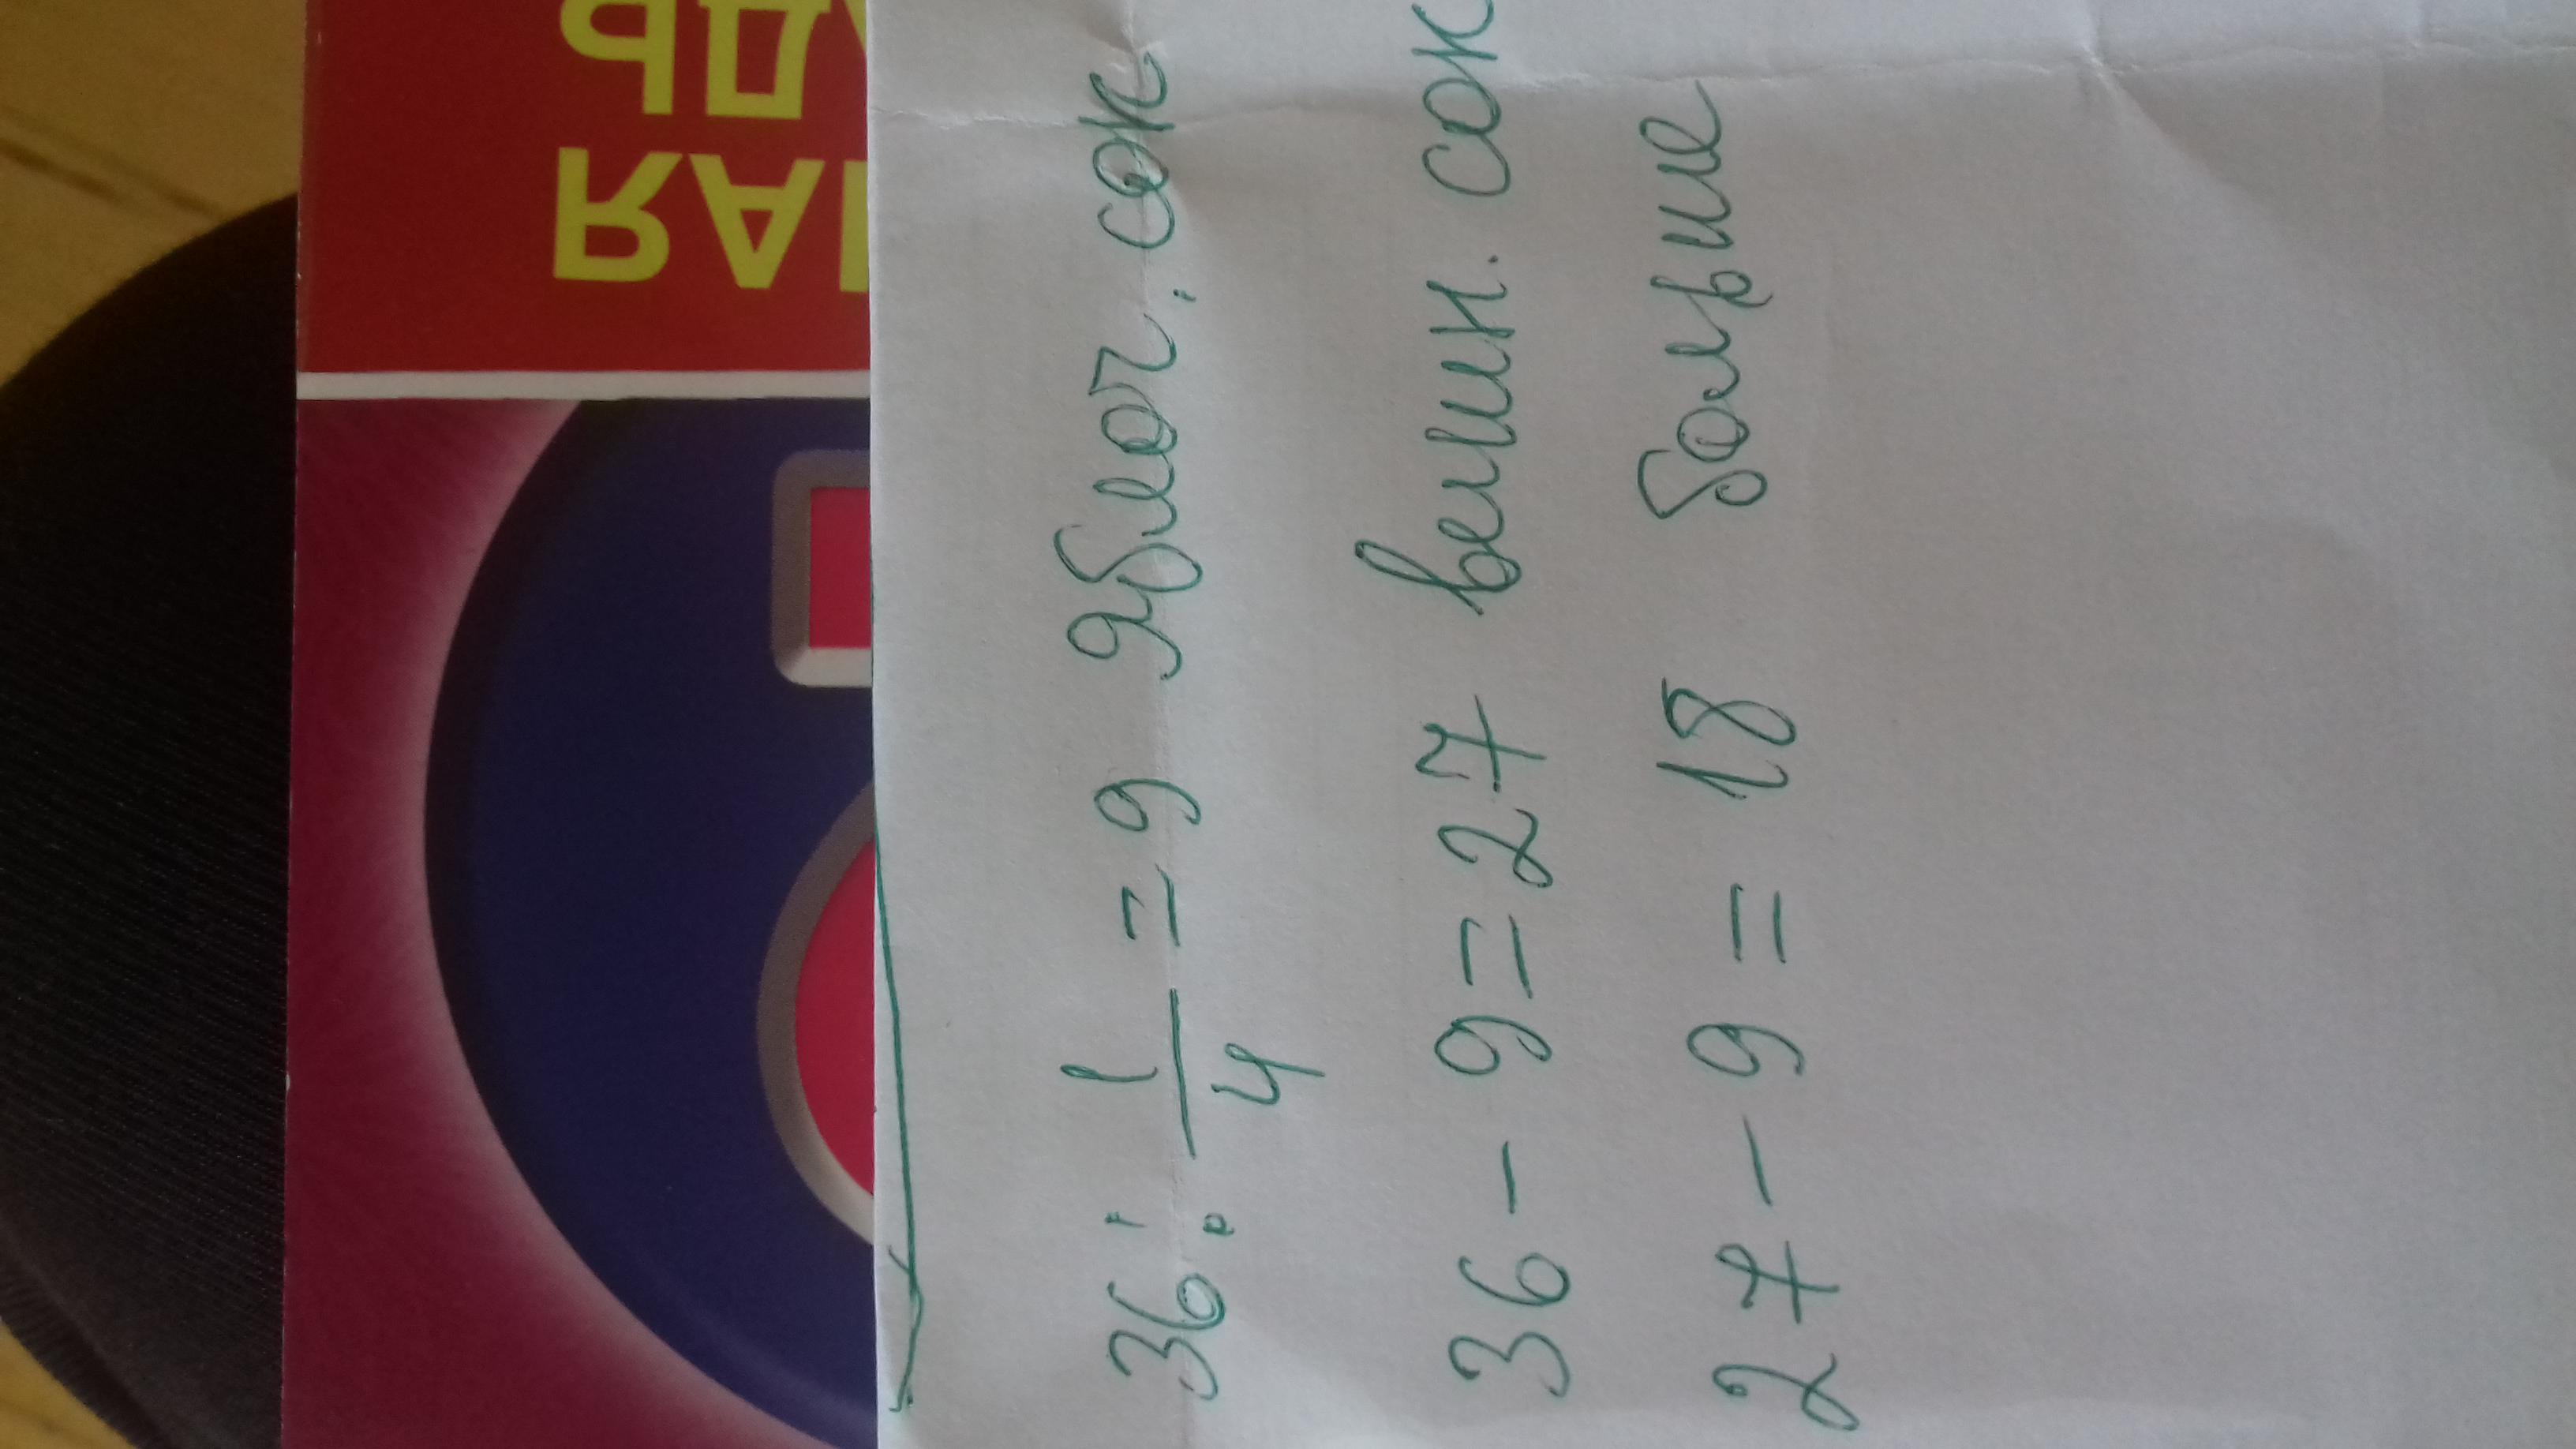 36 : 1/4 = 9 яблоч. сок
36 - 9 = 27 вишн. сок
27 - 9 = 18 больше